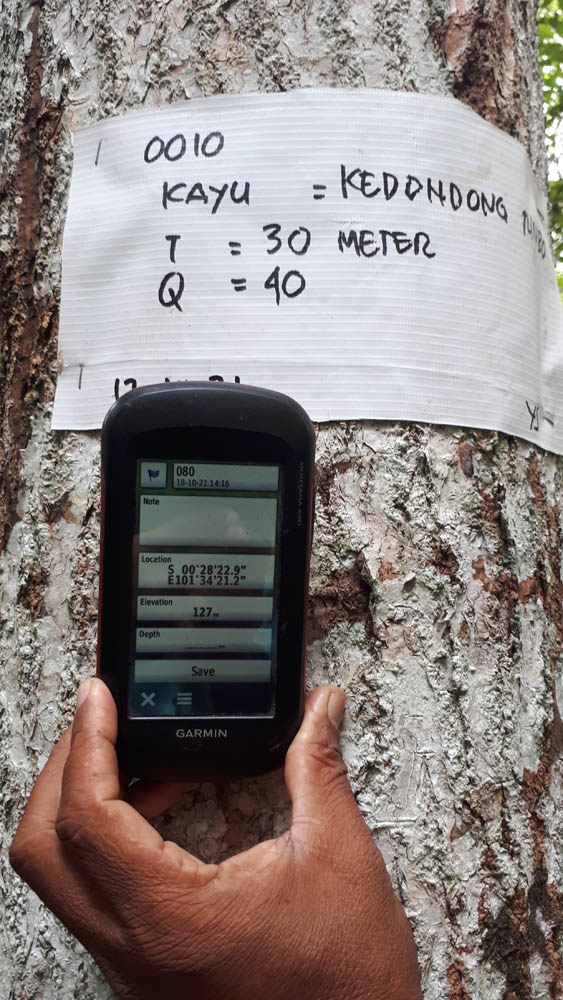 0010
KAYU = KEDONDONG
T = 30 METER
Q = 40
080
18-10-21 14:16
Note
Location
S 00°28'22.9"
E101°34'21.2"
Elevation
127m
Depth
_____m
Save
GARMIN